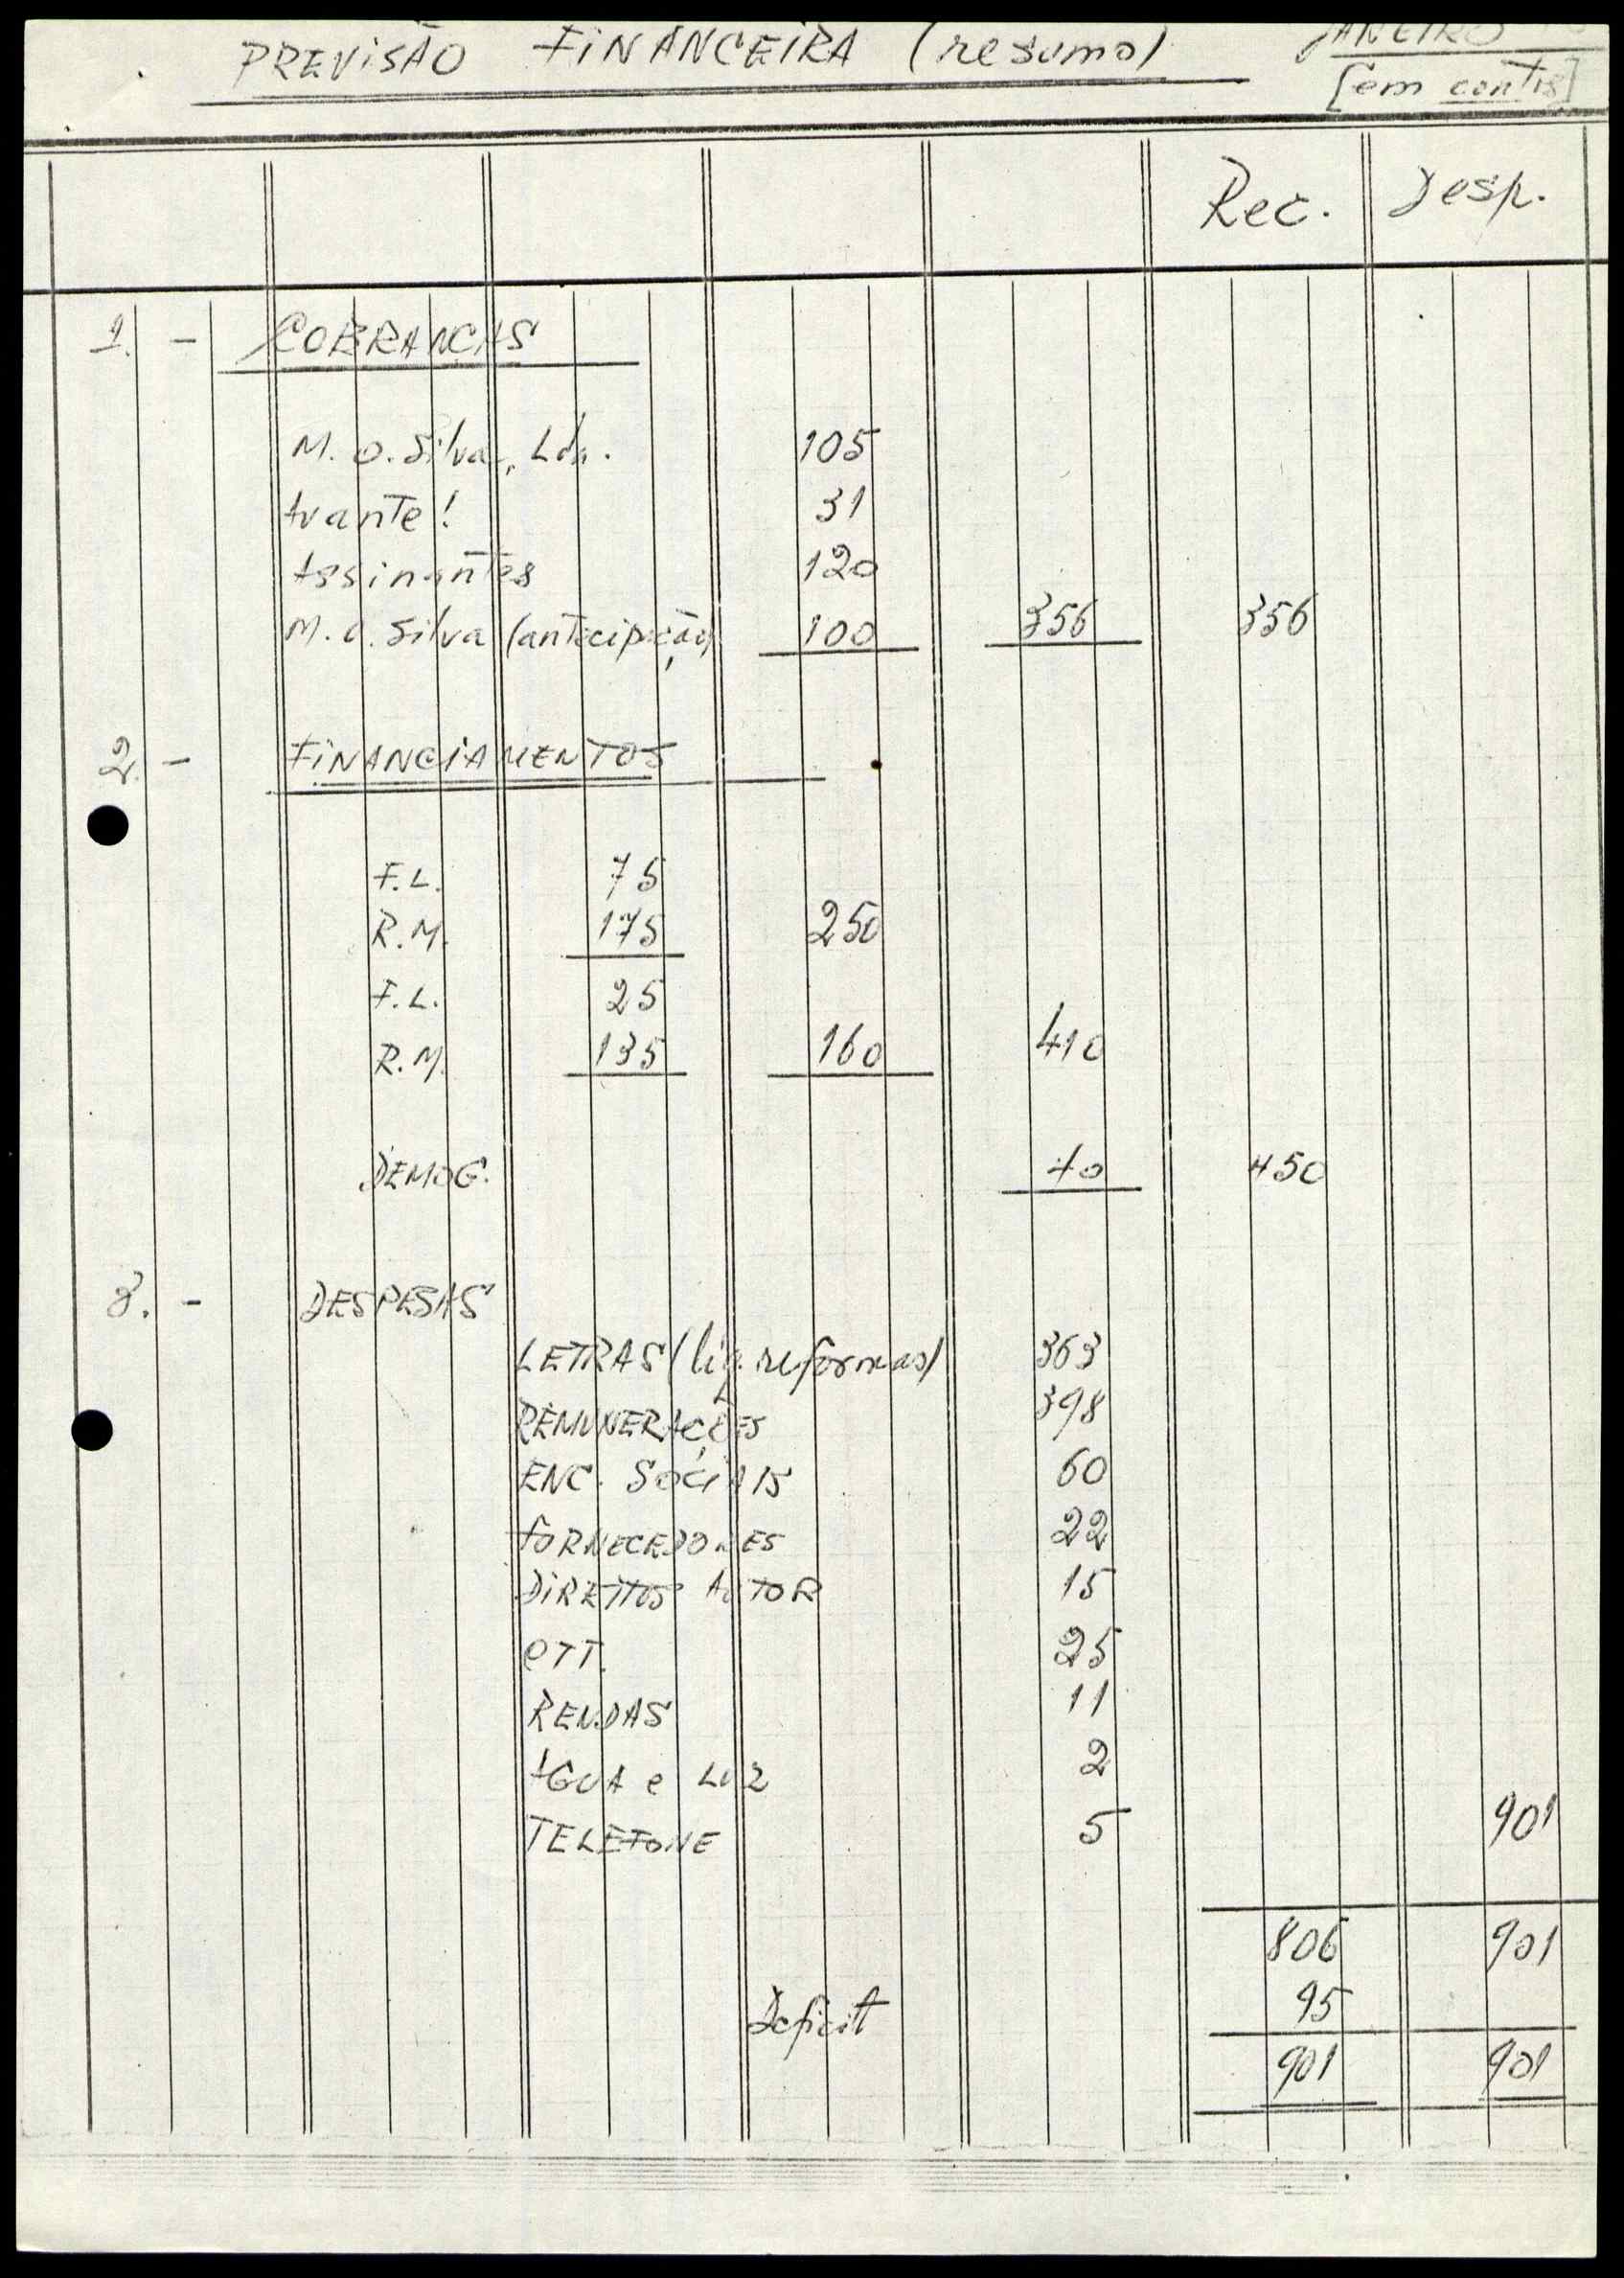 PREVISÃO FINANCEIRA (resumo) JANEIRO
[em contos]
Rec. Desp.
1. - COBRANÇAS
M. O. Silva, Lda. 105
Avante! 31
Assinantes 120
M. O. Silva (antecipação) 100 356 356
2. - FINANCIAMENTOS
F.L. 75
R.M. 175 250
F.L. 25
R.M. 135 160 410
DEMOG. 40 450
3. - DESPESAS
LETRAS (liq. reformas) 363
REMUNERAÇÕES 398
ENC. SOCIAIS 60
FORNECEDORES 22
DIREITOS AUTOR 15
CTT. 25
RENDAS 11
AGUA e LUZ 2
TELEFONE 5 901
806 901
Deficit 95
901 901